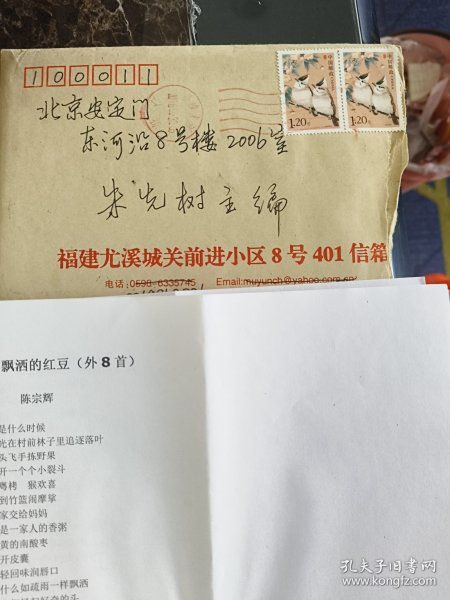 100011
中国邮政
1.20元
中国邮政
1.20元
北京安定门
东河沿8号楼2006室
朱先树主编
福建尤溪城关前进小区8号401信箱
电话:0598-6335745 Email:muyunch@yahoo.com.cn
飘洒的红豆(外8首)
陈宗辉
是什么时候
光在村前林子里追逐落叶
头飞手拣野果
开一个个小裂斗
粤栲 猴欢喜
到竹篮闹摩挲
家交给妈妈
是一家人的香粥
黄的南酸枣
开皮囊
轻回味润唇口
什么如疏雨一样飘洒
孔夫子旧书网
www.kongfz.com